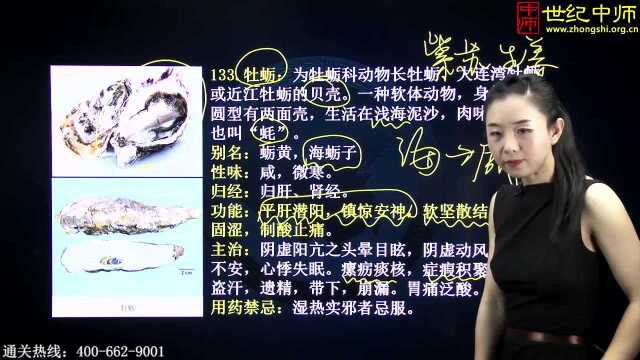 中师
世纪中师
www.zhongshi.org.cn
紫苏 生姜
133 牡蛎：为牡蛎科动物长牡蛎，大连湾牡蛎
或近江牡蛎的贝壳。一种软体动物，身
圆型有两面壳，生活在浅海泥沙，肉味
也叫“蚝”。
别名：蛎黄，海蛎子
海
性味：咸，微寒。
归经：归肝、肾经。
功能：平肝潜阳，镇惊安神，软坚散结
固涩，制酸止痛。
主治：阴虚阳亢之头晕目眩，阴虚动风
不安，心悸失眠。瘰疬痰核，症瘕积聚
盗汗，遗精，带下，崩漏。胃痛泛酸。
用药禁忌：湿热实邪者忌服。
通关热线：400-662-9001